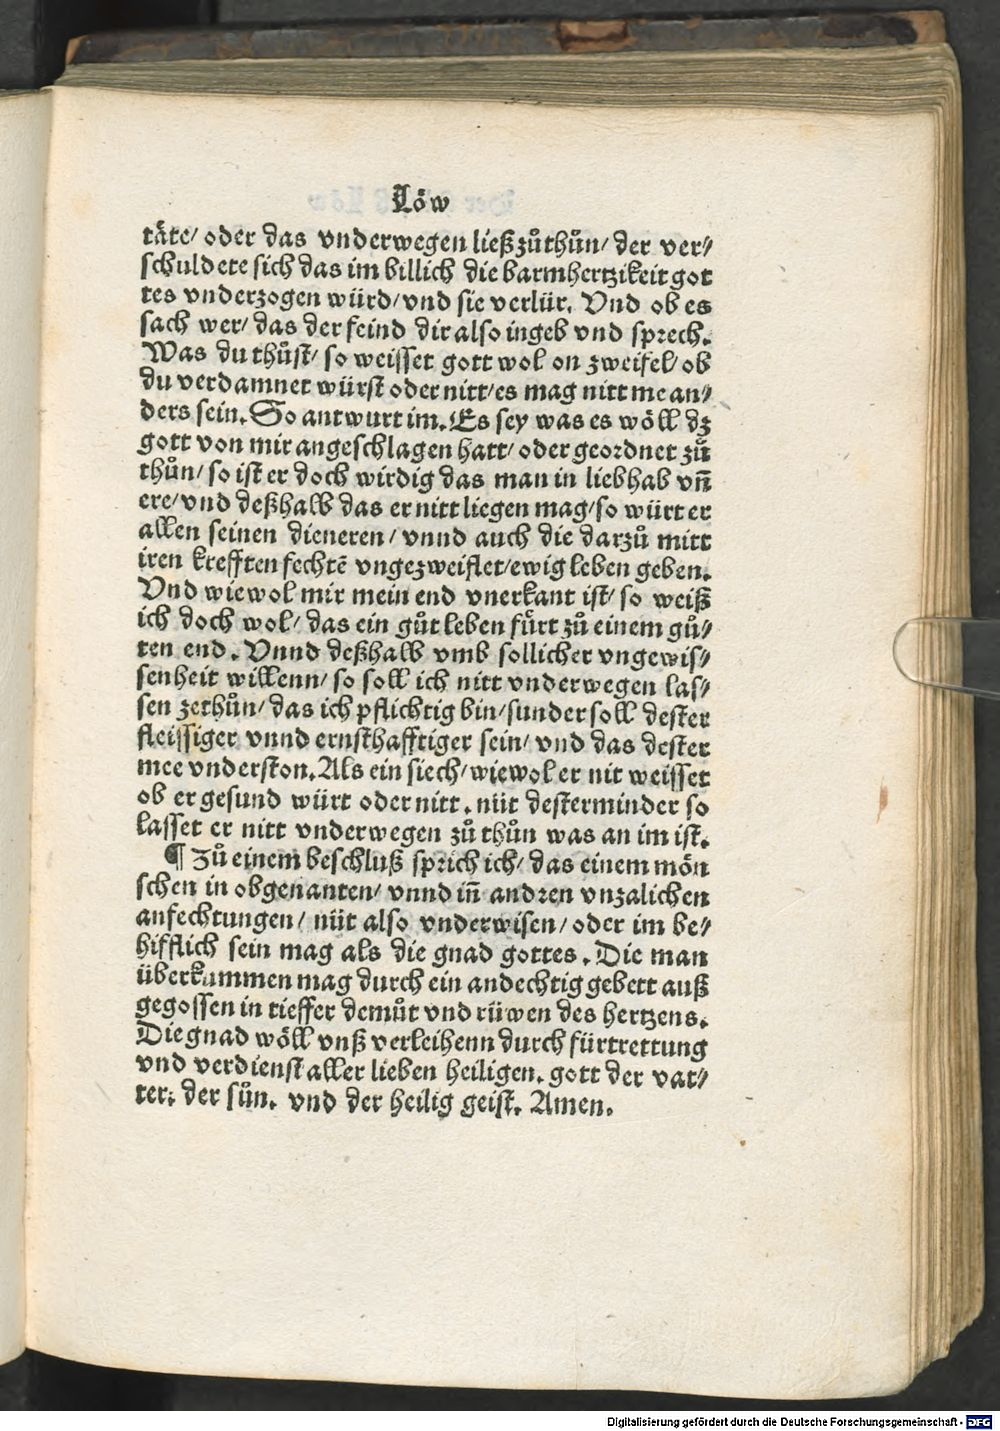 Löw
täte/ oder das vnderwegen ließ zůthůn/ der ver⸗
schuldete sich das im billich die barmhertzikeit got
tes vnderzogen würd/ vnd sie verlür. Vnd ob es
sach wer/ das der feind dir also ingeb vnd sprech.
Was du thůst/ so weisset gott wol on zweifel/ ob
du verdamnet würst oder nitt/ es mag nitt me an⸗
ders sein. So antwurt im. Es sey was es wöll dz
gott von mir angeschlagen hatt/ oder geordnet zů
thůn/ so ist er doch wirdig das man in liebhab vn̄
ere/ vnd deßhalb das er nitt liegen mag/ so würt er
allen seinen dieneren/ vnnd auch die darzů mitt
iren krefften fechtē vngezweiflet/ ewig leben geben.
Vnd wiewol mir mein end vnerkant ist/ so weiß
ich doch wol/ das ein gůt leben fürt zů einem gů⸗
ten end. Vnnd deßhalb vmb sollicher vngewis⸗
senheit willenn/ so soll ich nitt vnderwegen las⸗
sen zethůn/ das ich pflichtig bin/ sunder soll dester
fleissiger vnnd ernsthafftiger sein/ vnd das dester
mee vnderston. Als ein siech/ wiewol er nit weisset
ob er gesund würt oder nitt. nüt desterminder so
lasset er nitt vnderwegen zů thůn was an im ist.
¶ Zů einem beschluß sprich ich/ das einem mön
schen in obgenanten/ vnnd in̄ andren vnzalichen
anfechtungen/ nüt also vnderwisen/ oder im be⸗
hifflich sein mag als die gnad gottes. Die man
überkummen mag durch ein andechtig gebett auß
gegossen in tieffer demůt vnd rüwen des hertzens.
Die gnad wöll vnß verleihenn durch fürtrettung
vnd verdienst aller lieben heiligen. gott der vat⸗
ter. der sůn. vnd der heilig geist. Amen.
Digitalisierung gefördert durch die Deutsche Forschungsgemeinschaft - DFG